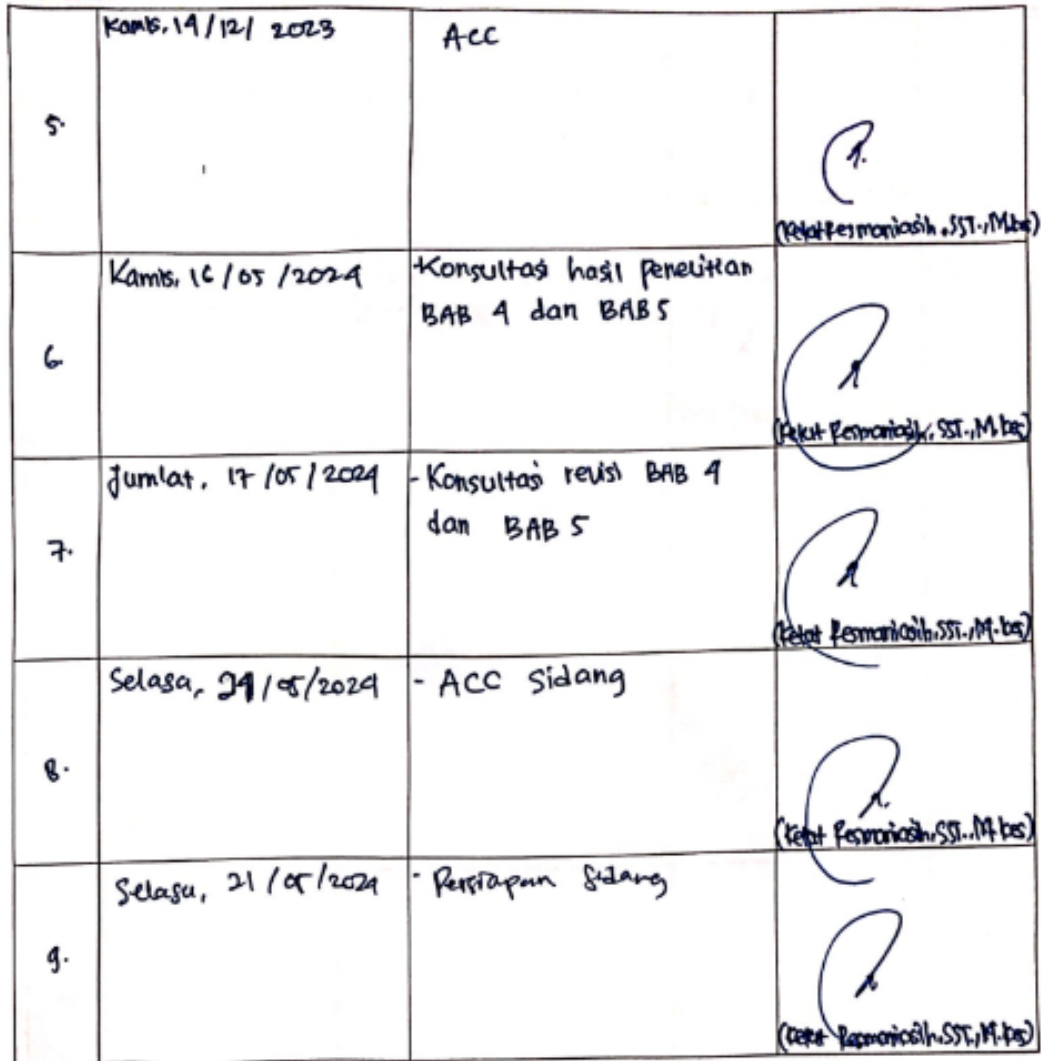 5.
Kamis, 14/12/ 2023
Acc
(Ketut Resmaniasih, SST., M.kes)
6.
Kamis, 16/05/2024
-Konsultasi hasil penelitian
BAB 4 dan BAB 5
(Ketut Resmaniasih, SST., M.kes)
7.
Jumlat, 17/05/2024
- Konsultasi revisi BAB 4
dan BAB 5
(Ketut Resmaniasih, SST., M.kes)
8.
Selasa, /05/2024
- ACC Sidang
(Ketut Resmaniasih, SST., M.kes)
9.
Selasa, 21/05/2024
- Persiapan Sidang
(Ketut Resmaniasih, SST., M.kes)